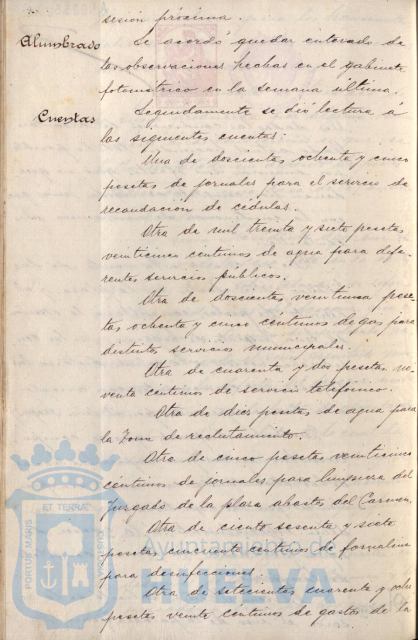 sesión próxima.
Alumbrado
Se acordó quedar enterado de
las observaciones hechas en el gabinete
fotométrico en la semana última.
Cuentas
Seguidamente se dió lectura á
las siguientes cuentas:
Una de doscientas ochenta y cinco
pesetas de jornales para el servicio de
recaudación de cédulas.
Otra de mil treinta y siete pesetas
veinticinco centimos de agua para dife-
rentes servicios públicos.
Otra de doscientas veintiuna pese-
tas ochenta y cinco céntimos de gas para
distintos servicios municipales.
Otra de cuarenta y dos pesetas no-
venta centimos de servicio telefónico.
Otra de diez pesetas de agua para
la Zona de reclutamiento.
Otra de cinco pesetas veinticinco
céntimos de jornales para limpieza del
Juzgado de la plaza abastos del Carmen.
Otra de ciento sesenta y siete
pesetas cincuenta centimos de formalina
para desinfecciones.
Otra de setecientas cuarenta y ocho
pesetas veinte centimos de gastos de la
PORTUS MARIS
ET TERRAE
Ayuntamiento de
HUELVA